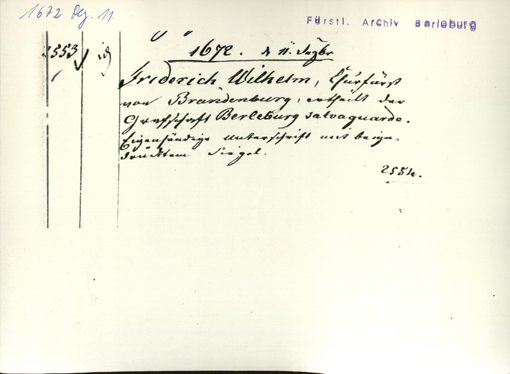 1672 Dez. 11
Fürstl. Archiv Berleburg
2553
1672. d 11. Dezbr
Friderich Wilhelm, Churfürst
von Brandenburg, ertheilt der
Grafschaft Berleburg salvaguarde.
Eigenhändige Unterschrift mit beige-
drücktem Siegel.
2554.